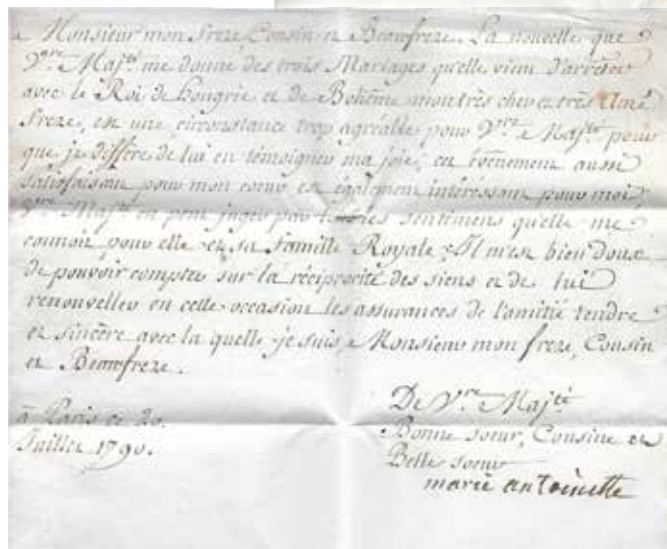 Monsieur mon frere, Cousin et Beaufrere. La nouvelle que
Vre. Majté. me donne des trois Mariages qu'elle vien d'arrêter
avec le Roi de hongrie et de Bohême mon très cher et très amé
frere, est une circonstance trop agréable pour Vre. Majté. pour
que je diffère de lui en témoigner ma joie; cet évènement aussi
satisfaisant pour mon coeur est également intéressant pour moi,
Vre. Majté. en peut juger par les sentimens qu'elle me
connoit pour elle et sa famille Royale. Il m'est bien doux
de pouvoir compter sur la réciprocité des siens et de lui
renouveller en cette occasion les assurances de l'amitié tendre
et sincère avec la quelle je suis, Monsieur mon frere, Cousin
et Beaufrere.
à Paris ce 20.
Juillet 1790.
De Vre. Majté
Bonne soeur, Cousine et
Belle soeur
marie antoinette